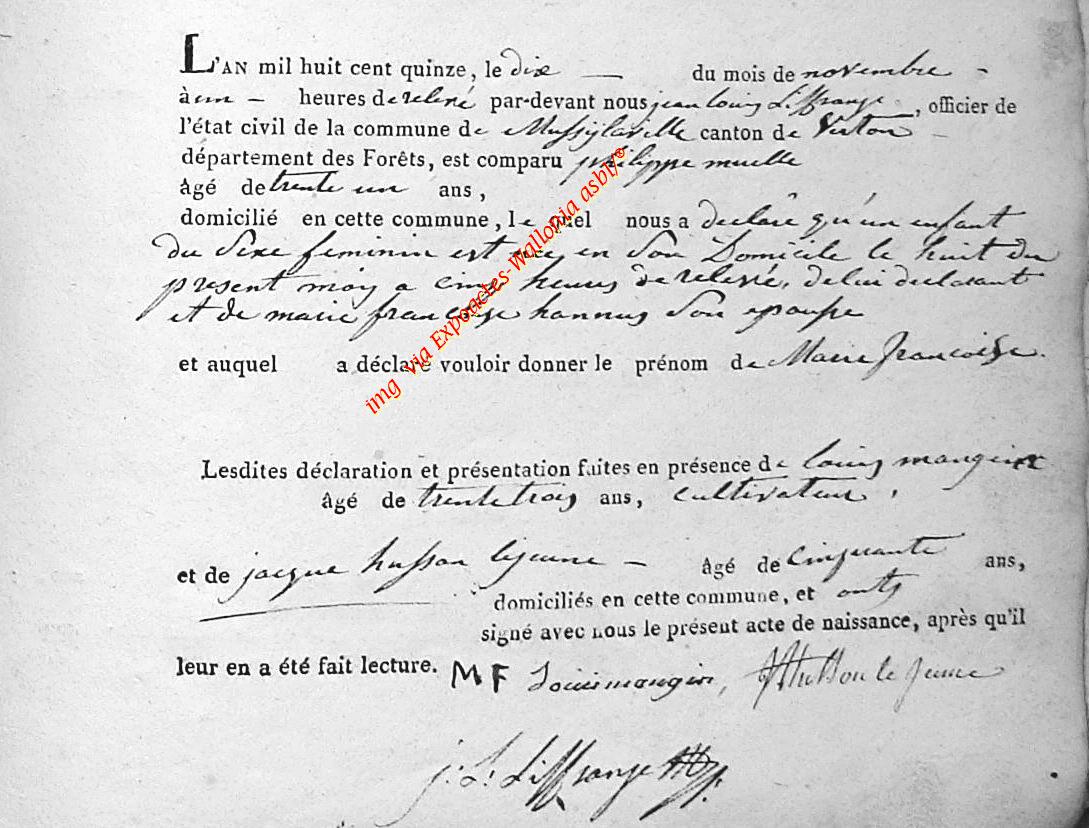 L'AN mil huit cent quinze, le dix — du mois de novembre -
à un - heures de relevé par-devant nous jean louis Liffrange, officier de
l'état civil de la commune de Mussÿlaville canton de Virton -
département des Forêts, est comparu philippe muelle
âgé de trente un ans,
domicilié en cette commune, lequel nous a declaré qu'un enfant
du Sexe feminin est née en Son Domicile le huit du
present mois a cinq heures de relevée, de lui declarant
et de marie francoise hannus Son epouse
et auquel a déclaré vouloir donner le prénom de Marie francoise.
Lesdites déclaration et présentation faites en présence de louis mangin
âgé de trente trois ans, cultivateur,
et de jacque husson lejeune — âgé de cinquante ans,
domiciliés en cette commune, et onts
signé avec nous le présent acte de naissance, après qu'il
leur en a été fait lecture. MF Louis mangin, Husson le jeune
j: L: Liffrange
img via Expoactes-Wallonia asbl/®